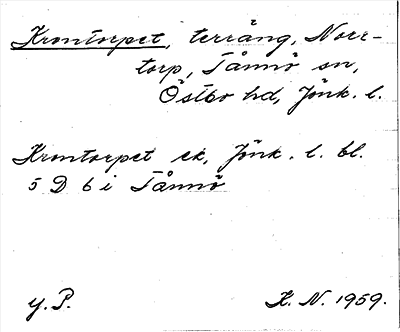 Krontorpet, terräng, Norr-
torp, Tånnö sn,
Östbo hd, Jönk. l.
Krontorpet ek, Jönk. l. bl.
5 D 6 i Tånnö
Y. P.
K. N. 1959.